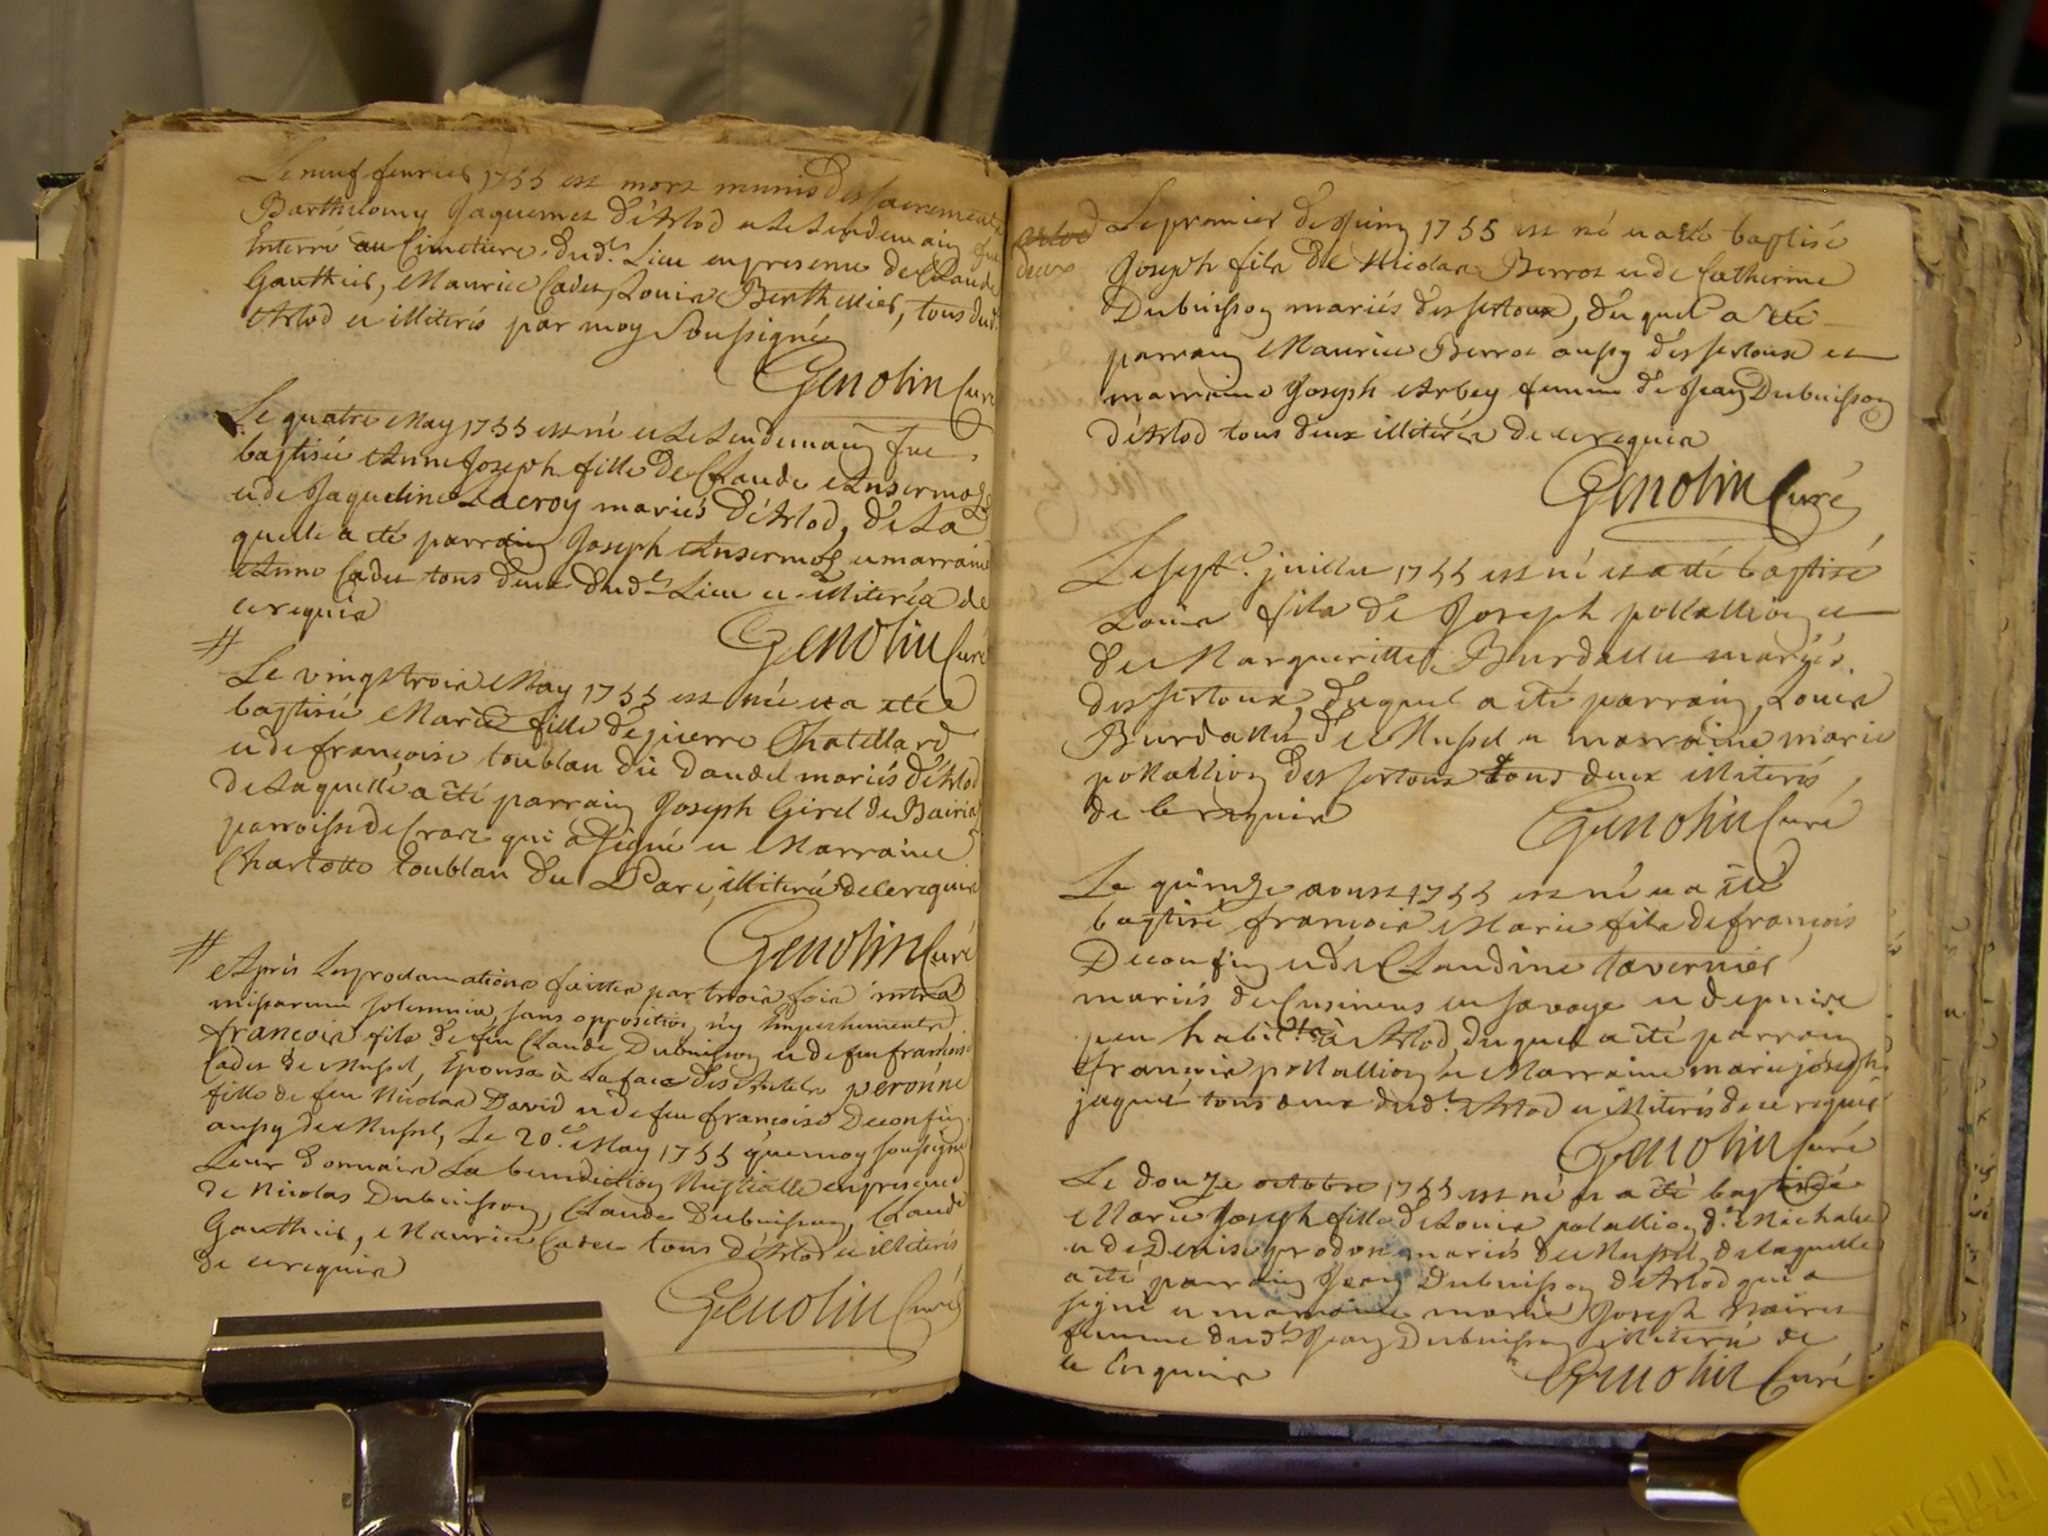 Le neuf feurier 1755 est mort munis des sacrements
Barthelemy Jaquemet d'Arlod et le lendemain fut
Enterré au Cimetiere dud.t Lieu en presence de Claude
Gauthier, Maurice Cadet, Louis Berthellier, tous dud.
Arlod et illiterés par moy Soussigné
Genolin Curé
Le quatre May 1755 est né et le lendemain fut
baptisée Anne Joseph fille de Claude Ansermoz
et de Jaqueline Lacroy mariés d'Arlod, de la
quelle a été parrain Joseph Ansermoz et marraine
Anne Cadet tous deux dud.t Lieu et illiterés de
ce requis
Genolin Curé
#
Le vingt trois May 1755 est née et a été
baptisée Marie fille de pierre Chatellard
et de francoise toublan du daudel mariés d'Arlod
de laquelle a été parrain Joseph Girel de Bairiat
parroisse de Craz qui a signé et Marraine
Charlotte toublan du Parc, illiterée de ce requise
Genolin Curé
#
Apres les proclamations faittes par trois fois intra
missarum solemnia, sans opposition, n'y Empechements,
francois fils de feu Claude Dubuisson et de feu francoise
Cadet de Mussel, Epousa à la face des Autels peronne
fille de feu Nicolas David et de feu francoise Decoufin
aussy de Mussel, Le 20.e May 1755 que moy soussigné
Leur donnais La benediction Nuptialle en presence
de Nicolas Dubuisson, Claude Dubuisson, Claude
Gauthier, Maurice Cadet tous d'Arlod et illiterés
de ce requis
Genolin Curé
Arlod
deux
Le premier de Juing 1755 est né et a été baptisé
Joseph fils de Nicolas Berrot et de Catherine
Dubuisson mariés des sertoux, du quel a été
parrain Maurice Berrot aussy des sertoux et
marraine Joseph Arbey femme de Jean Dubuisson
d'Arlod tous deux illiterés de ce requis
Genolin Curé
Le sept.e juillet 1755 est né et a été baptisé
Louis fils de Joseph pollallion et
de Margueritte Burdallet mariés
des sertoux, duquel a été parrain Louis
Burdallet de Mussel et marraine marie
pollallion des sertoux tous deux illiterés
de ce requis
Genolin Curé
Le quinze aoust 1755 est né et a été
baptisé francois Marie fils de francois
Decoufin et de Claudine tavernier
mariés de Cusinens en savoye et depuis
peu habit.ts à Arlod, duquel a été parrain
francois pollallion et Marraine marie joseph
jaquet tous deux dud.t Arlod et illiterés de ce requis
Genolin Curé
Le douze octobre 1755 est né et a été baptisée
Marie Joseph fille de Louis polallion d.t Michalet
et de Denise prodon mariés de Mussel, de laquelle
a été parrain Jean Dubuisson d'Arlod qui a
signé et marraine marie Joseph
femme dud.t Jean Dubuisson illiterée de
ce Enquise
Genolin Curé